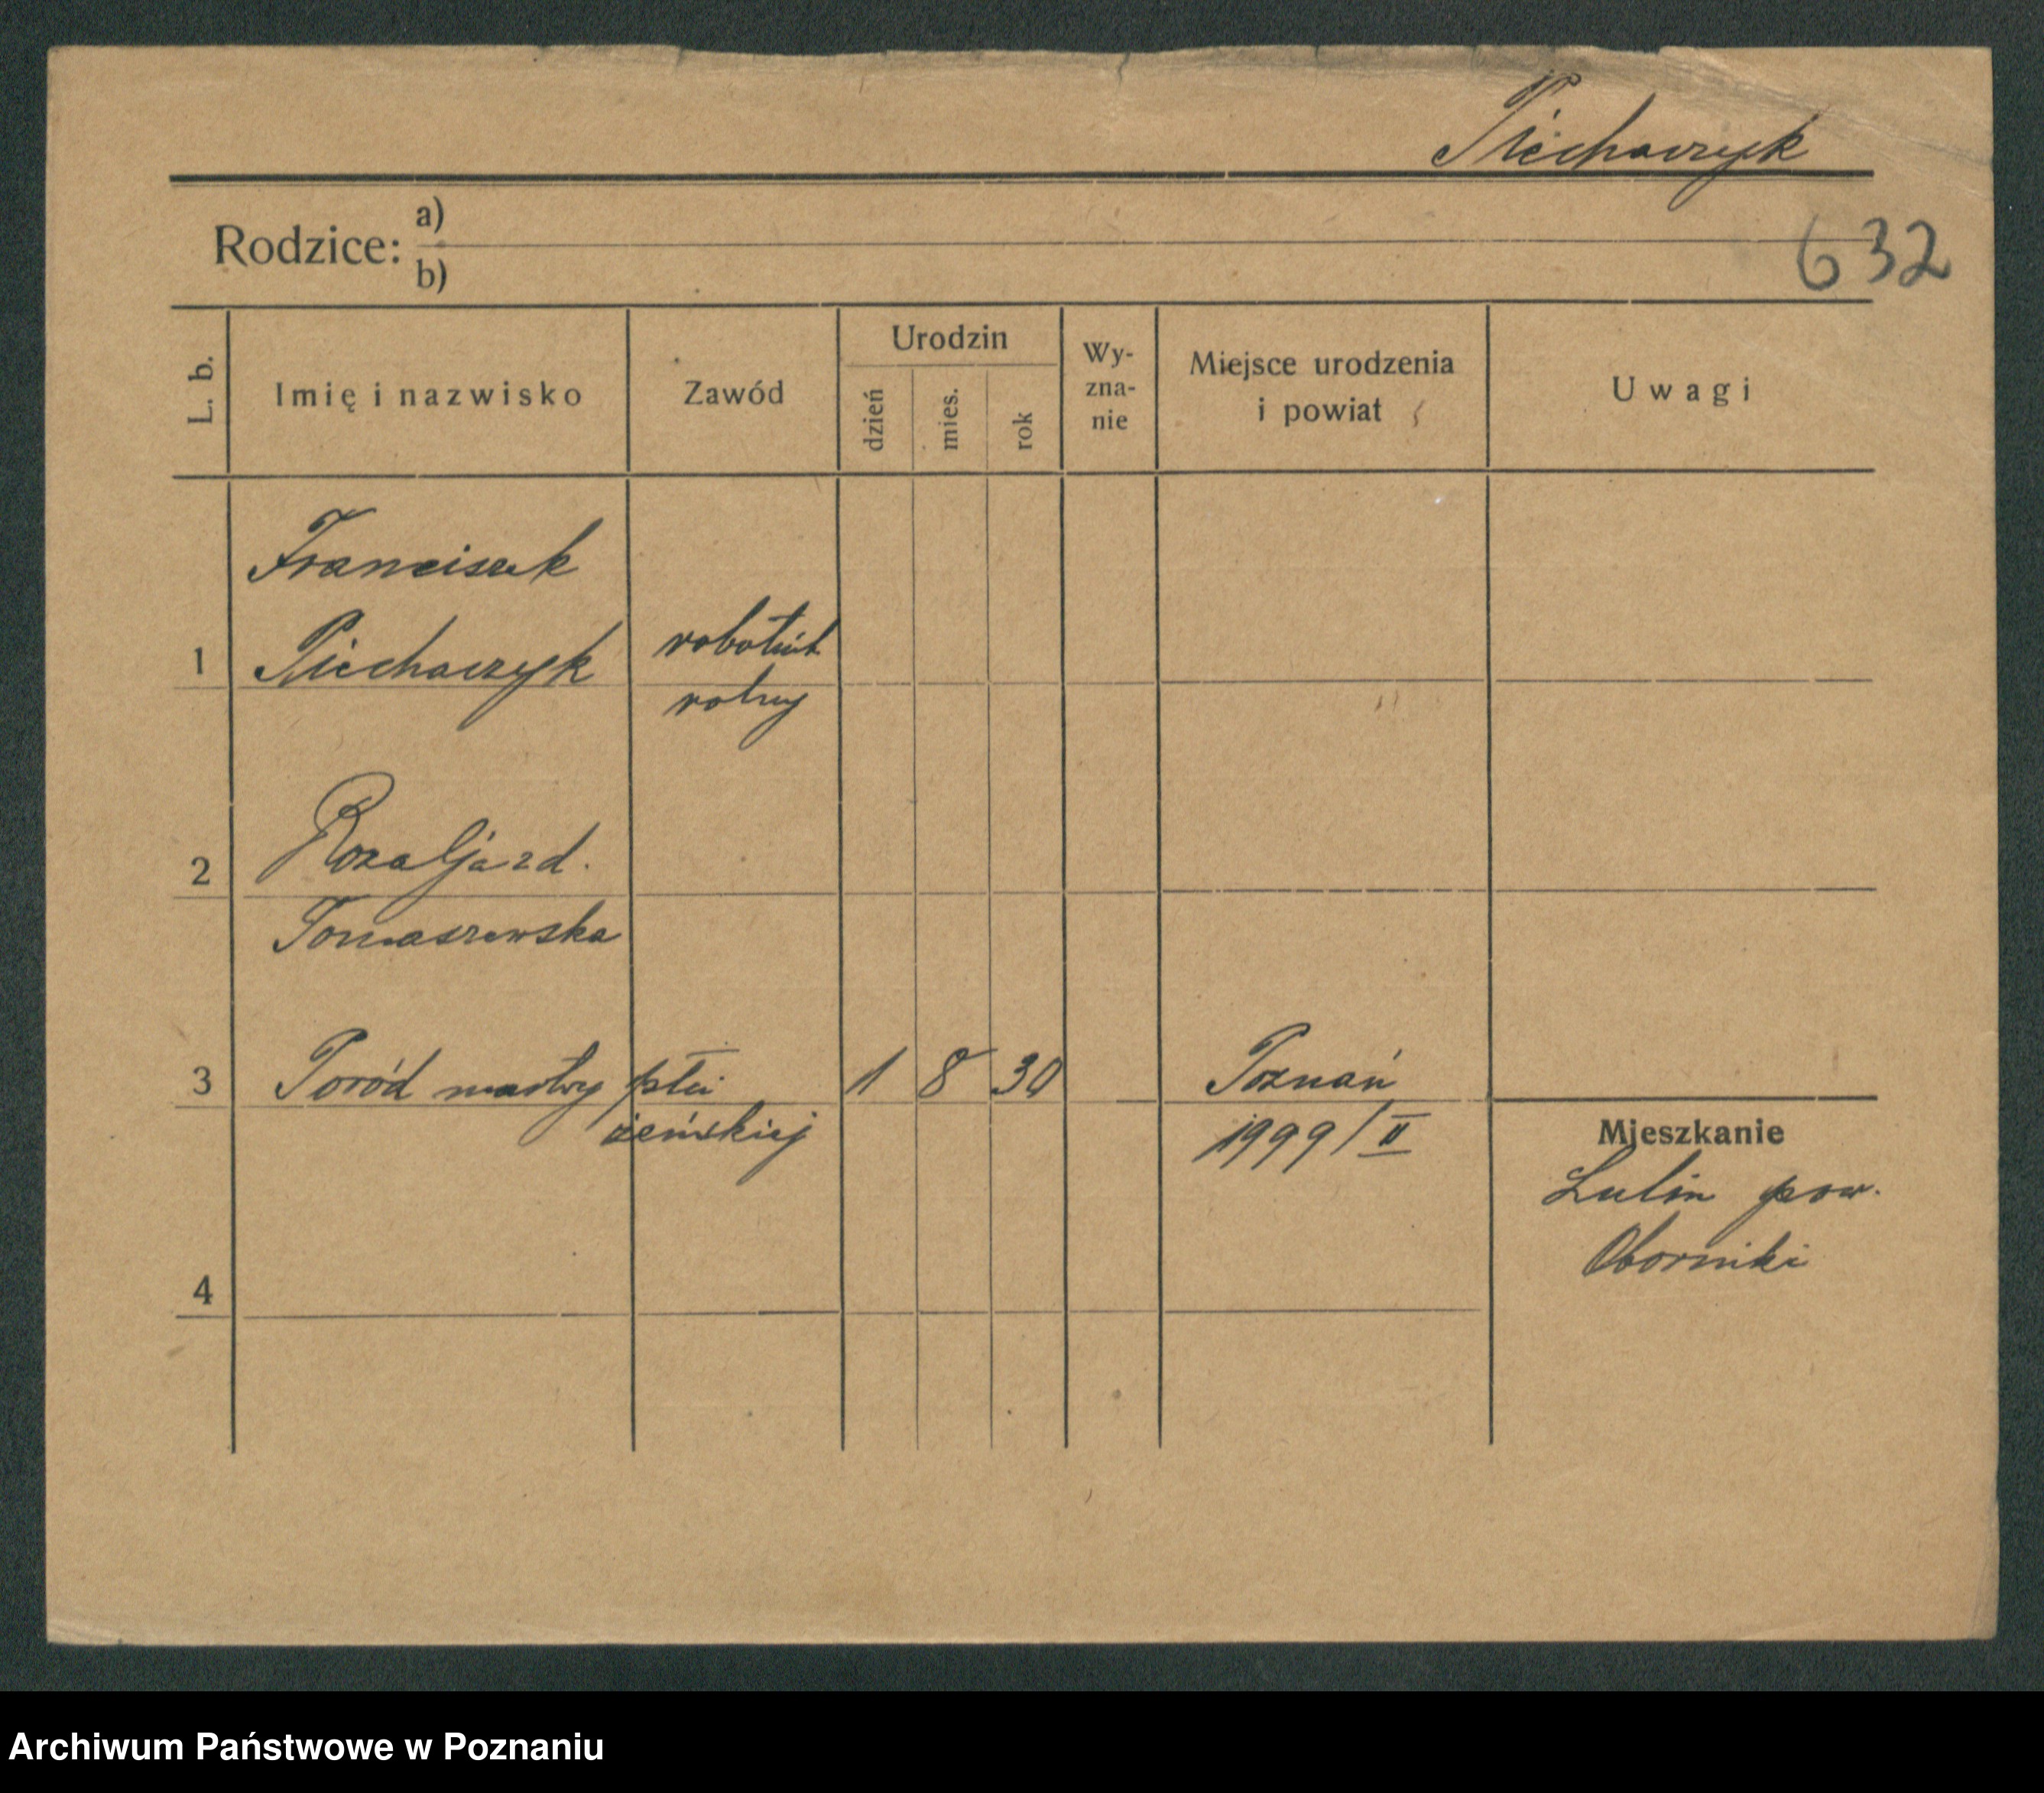 Piechaczyk
632
Rodzice: a)
b)
L. b.
Imię i nazwisko
Zawód
Urodzin
dzień
mies.
rok
Wy-
zna-
nie
Miejsce urodzenia
i powiat
Uwagi
Franciszek
1 Piechaczyk robotnik
rolny
2 Rozalja zd.
Tomaszewska
3 Poród martwy płci 1 8 30 Poznań
żeńskiej 1999/II
Mieszkanie
Lulin pow.
Oborniki
4
Archiwum Państwowe w Poznaniu